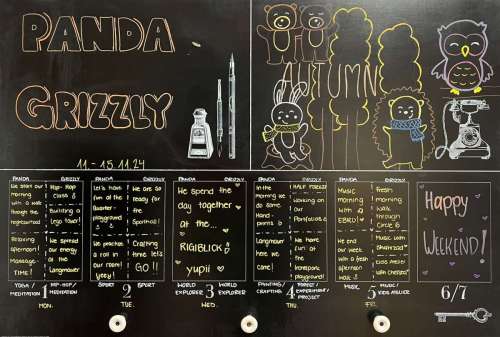 PANDA
GRIZZLY
11 - 15.11.24
AUTUMN
PANDA
GRIZZLY
We start our
morning
with a walk
through the
neighbourhood
Hip-Hop
class
Building a
Lego Tower!
Relaxing
afternoon!
Massage-
TIME!
We spread
our energy
at the
Langmauer
YOGA /
MEDITATION
1
HIP-HOP/
MEDITATION
MON.
PANDA
GRIZZLY
Let's have
fun at the
playground
We are so
ready
for the
Sporthall!
We practice
a roll in
our room!
Crafting
time, let's
GO!!
SPORT
2
SPORT
TUE.
PANDA
GRIZZLY
We spend the
day together
at the...
RIGIBLICK
yupii
WORLD
EXPLORER
3
WORLD
EXPLORER
WED.
PANDA
GRIZZLY
In the
Morning we
do some
Hand-
prints
HALF FOREST
Working on
our
Portfolios
Langmauer
here we
come!
We have
fun at
the
playground!
PAINTING/
CRAFTING
4
FOREST/
EXPERIMENT/
PROJECT
THU.
PANDA
GRIZZLY
Music
morning
with
EBRU
Fresh
morning
walk
through
Circle 6
We end
our week
with a fresh
afternoon
walk
MUSIC
5
MUSIC/
KIDS ATELIER
FRI.
Happy
WEEKEND!
6/7